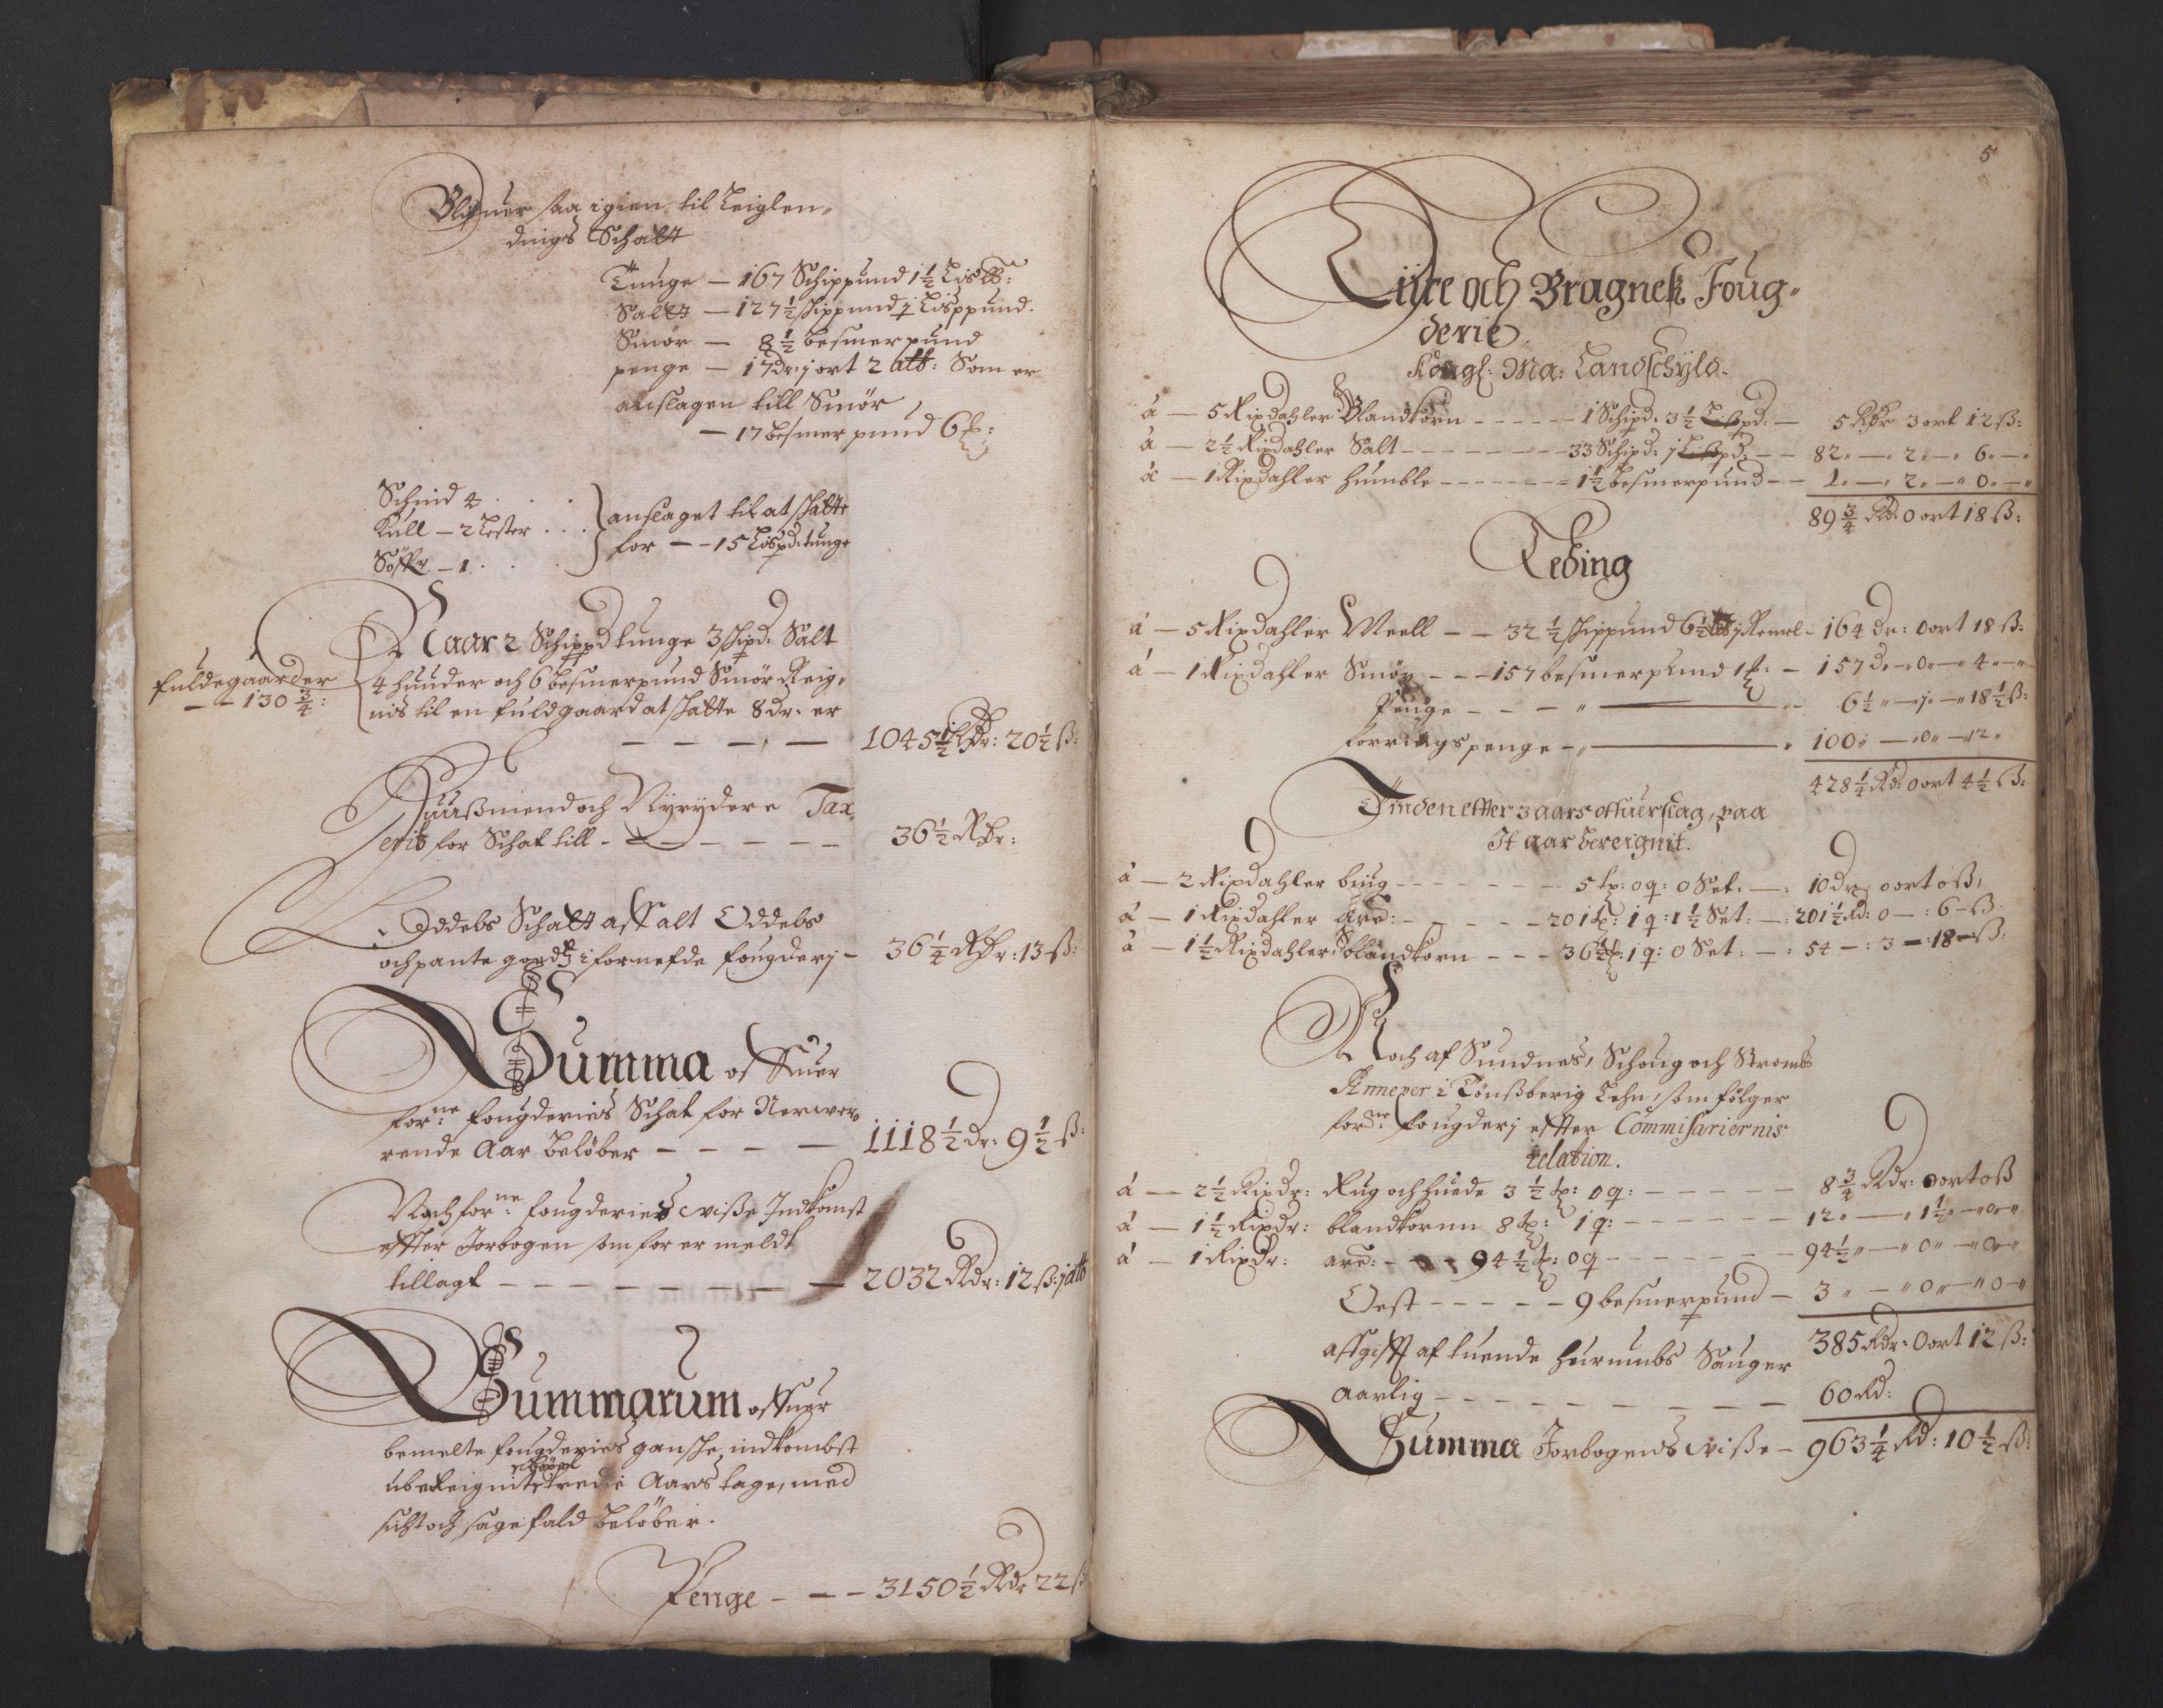 Blifuer saa igien til Leiglen-
dings Schatt
Tunge — 167 Schippund 1½ Lis℔:
Saltt — 127½ skippund j Lisppund.
Smör — 8½ besmerpund
penge — 17 dr: j ort 2 alb: Som er
anslagen till Smör
— 17 besmer pund 6 ℔:
Schind 4 . . .
Kull — 2 Lester . . .
anslaget til at skatte
for — — 15 Lispd: tunge
— 1 . . .
Naar 2 Schippd tunge 3 skipd: Salt
4 hunder och 6 besmerpund Smör Reig-
nis til en fuldgaard at skatte 8 dr: er
fuldegaarder
— — 130¾:
— — — — 1045½ Rdr: 20½ ß:
Huußmend och Nyrydere Tax-
for Schat till - — — — — 36½ Rdr:
Oddels Schatt aff alt Oddels
och pante i fornefde fougderj — 36¼ Rdr: 13 ß:
Summa offuer
forne: fougderies Schat for Nerwe-
rende Aar Belöber — — — — 1118½ dr: 9½ ß:
Noch forne: fougderies wiße Indkomst
effter Jorbogen som for er meldt
tillagt — — — — — — — 2032 Rdr: 12 ß: j alb
Summarum offuer
bemelte fougderies gansche indkombst
ubereignit tredie Aars tage, med
sicht och sagefald belöber.
Penge - — — 3150½ Rdr 22 ß
5
Liire och Bragnes Foug-
derie
Kongl: Ma: Landschyld.
á — 5 Rixdahler Blandkorn - - - - - 1 Schipd: 3½ Lispd: — 5 Rdr 3 ort 12 ß:
á — 2½ Rixdahler Salt - - - - - - - 33 Schipd: j Lispd: — 82 „ — „ 2 „ — „ 6 „ — „
á — 1 Rixdahler humble - - - - - - - 1½ besmerpund - - 1 „ — „ 2 „ — „ 0 „ — „
89¾ Rd: 0 ort 18 ß:
Leding
á — 5 Rixdahler Meell — — 32½ skippund 6½ j Remel - 164 dr: 0 ort 18 ß:
á — 1 Rixdahler Smör - - - 157 besmerpund 1 ℔: - 157 d „ — 0 „ — „ 4 „ — „
Penge - - - „ — „ 6½ „ — j „ — „ 18½ ß:
forringspenge - „ — „ 100 „ — „ 0 „ — „ 12 „
428¼ Rd: 0 ort 4½ ß:
Tinden etter 3 aars offuerslag, paa
It aar bereignit.
á — 2 Rixdahler biug - - - - - - 5 tp: 0 q: 0 Set: — : 10 dr 0 ort 0 ß:
á — 1 Rixdahler are: - - - - 201 tp: 1 q: 1½ Set: — : 201½ Rd: 0 — : 6 — ß:
á — 1½ Rixdahler blandkorn - - - 36½ tp: 1 q: 0 Set: — : 54 — : 3 — : 18 — ß:
Noch af Sundnes, Schoug och Stroms
Anneper i Tönßberig Lehn, som fölger
forne: fougderj effter Commisariernis
relation.
á — 2½ Rixdr: Rug och huede 3½ tp: 0 q: - - - - - 8¾ Rdr: 0 ort 0 ß
á — 1½ Rixdr: blandkornn 8 tp: 1 q: - - - - - 12 „ — „ 1½ „ — „ 0 „ — „
á — 1 Rixdr: are: - - - 94½ tp: 0 q - - - - - 94½ „ — „ 0 „ — „ 0 „ — „
Oest - - - - - 9 besmerpund — 3 „ — „ 0 „ — „ 0 — „
385 Rdr: 0 ort 12 ß:
affgifft af tuende hurumbs Sauger
aarlig - - - - - - - - - 60 Rd:
Summa Jorbogens wiße — 963¼ Rd: 10½ ß: